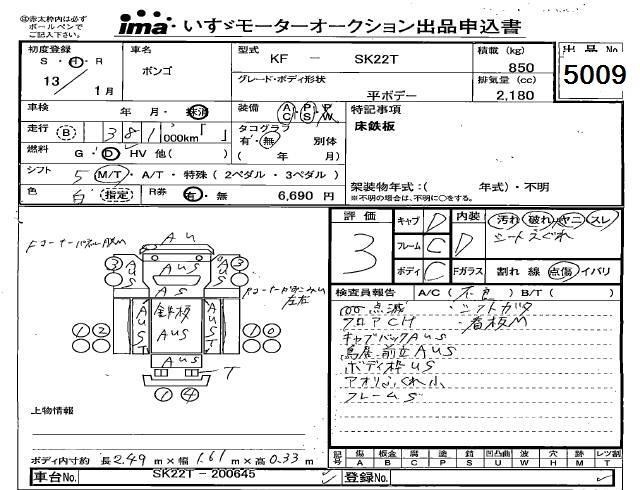 ㊟赤太枠内は必ず
ボールペンで
ご記入下さい。
ima いすゞモーターオークション出品申込書
初度登録 車名 型式 KF － SK22T 積載 (kg) 850 出品No
S・H・R ボンゴ グレード・ボディ形状 排気量 (cc) 5009
13 年 1月 平ボデー 2,180
車検 年 月・抹消 装備 AC PS PW 特記事項
走行 B 381 000km「 」 タコグラフ 床鉄板
有・無 別体
燃料 G・D・HV 他( ) ( 年 月)
シフト 5 M/T・A/T・特殊 ( 2ペダル・3ペダル )
色 白 指定 R券 有・無 6,690 円 架装物年式:( 年式)・不明
※不明の場合は、不明に○をする。
評価 3 キャブ D 内装 D 汚れ・破れ・ヤニ・スレ
フレーム C シートえぐれ
ボディ C Fガラス 割れ 線 点傷 イバリ
検査員報告 A/C( 不良 ) B/T( )
点滅 ・シフトガタ
フロアCH ・看板M
キャブバックAUS
鳥居.前立AUS
ボディ枠US
アオリふくれ小
フレームS
AU
AUS
AS
鉄板
AUS
AUS
AUST
AUST
3 3
1 2 1 0
T
1 4
上物情報
ボディ内寸約 長 2.49 m×幅 1.61 m×高 0.33 m
記号 傷 A 板金 B 腐 C 塗 P 錆 S 凹凸曲 U 波 W 穴 H 跡 M レツ割 T
車台No. SK22T-200645 登録No.